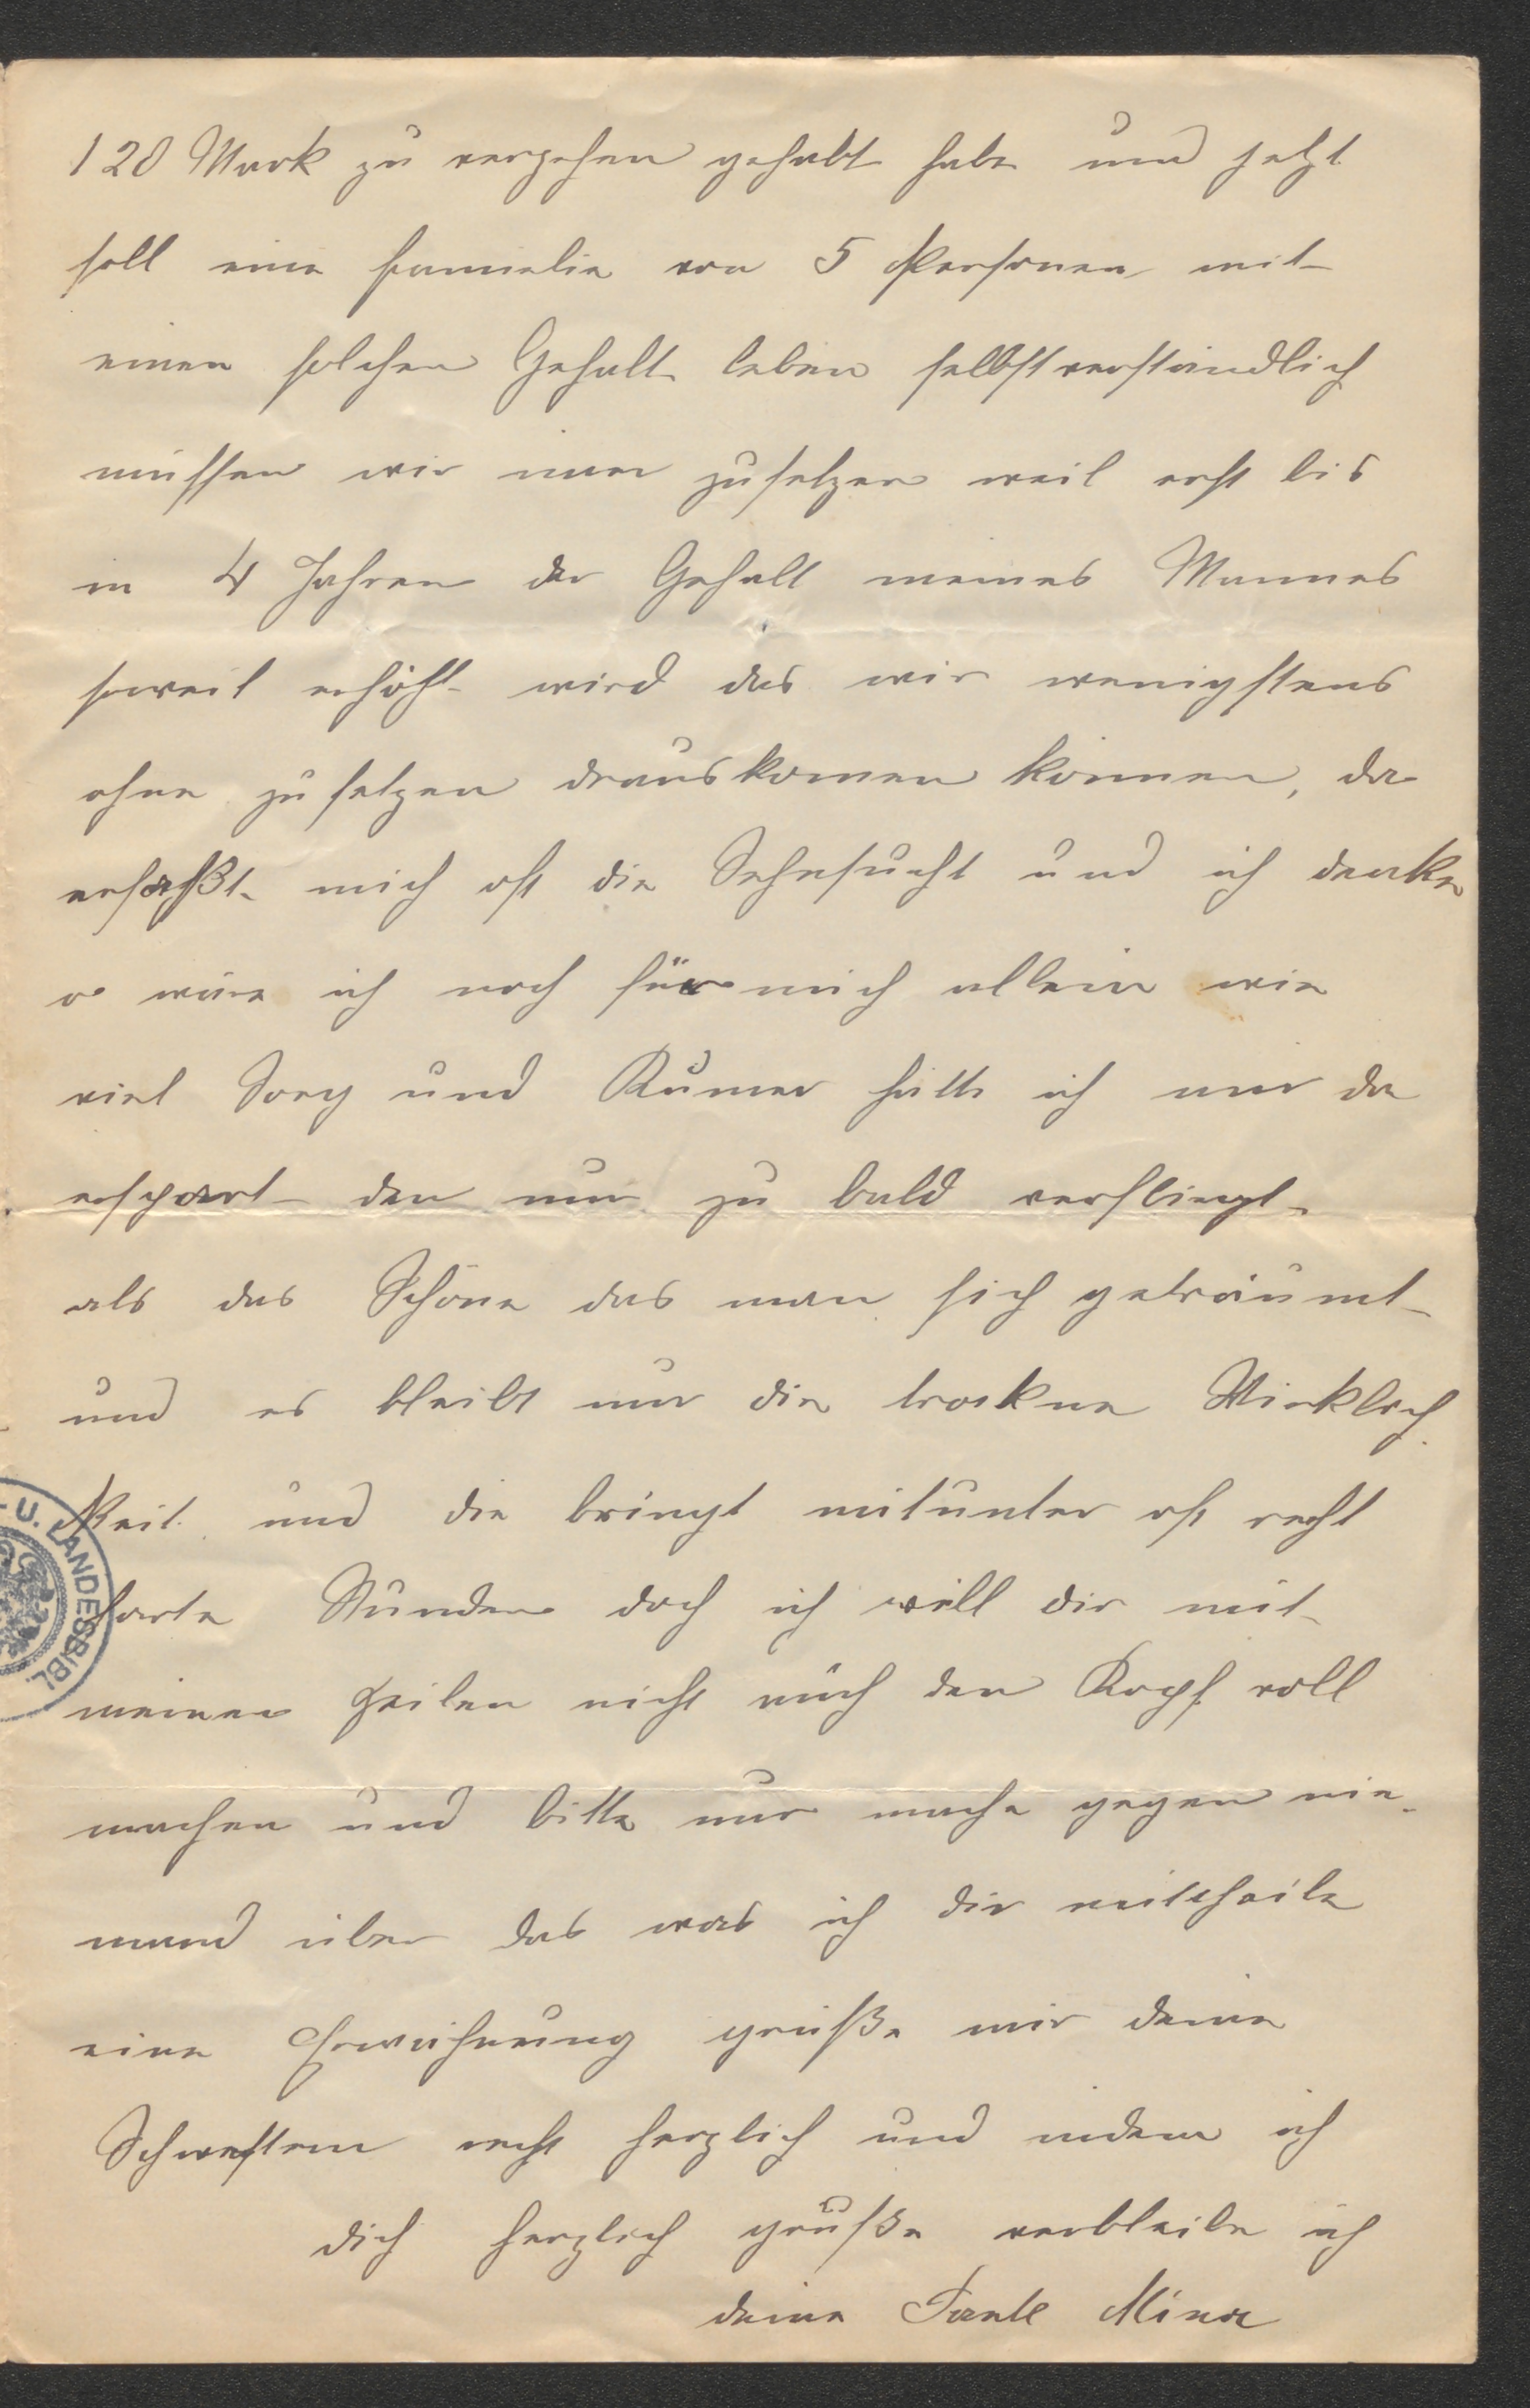 120 Mark zu verzehren gehabt habe und jetzt
soll eine Famielie von 5 Personen mit
einen solchen Gehalt leben selbstverständlich
müssen wir nun zusetzen weil erst bis
in 4 Jahren der Gehalt meines Mannes
soweit erhöht wird das wir wenigstens
ohne zu setzen drauskomen können, da
erfaßt mich oft die Sehnsucht und ich denke
o wäre ich noch für mich allein wie
viel Sorg und Kumer hätte ich mir da
erspart den nur zu bald verfliegt
als das Schöne das man sich geträumt
und es bleibt nur die trockne Wirklich
keit und die bringt mitunter oft recht
harte Stunden doch ich will dir mit
meinen Zeilen nicht auch den Kopf voll
machen und bitte nur mache gegen nie-
mand über das was ich dir mittheile
eine Erwähnung grüße mir deine
Schwestern recht herzlich und indem ich
dich herzlich grüße verbleibe ich
deine Tante Mina
U. LANDESBIBL.